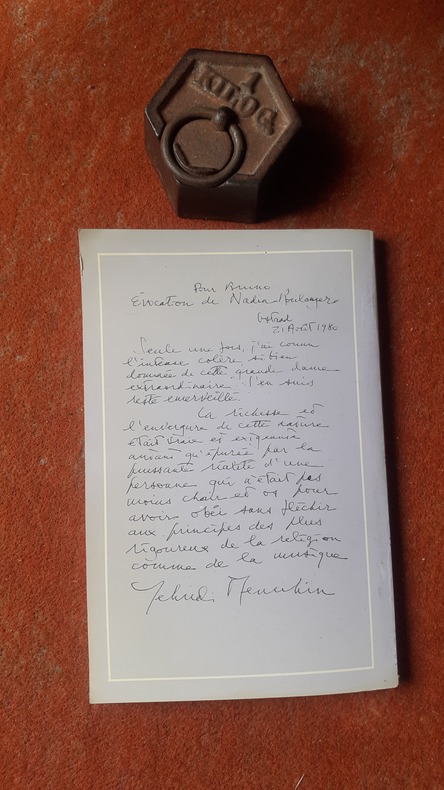 1
KILOG
Pour Bruno,
Evocation de Nadia Boulanger
Gstaad
21 Août 1980
Seule une fois, j'ai connu
l'intense colère si bien
dominée de cette grande dame
extraordinaire. J'en suis
resté émerveillé.
La richesse et
l'envergure de cette nature
était vraie et exigeante
autant qu'épurée par la
puissante réalité d'une
personne qui n'était pas
moins chair et os pour
avoir obéi sans fléchir
aux principes des plus
rigoureux de la religion
comme de la musique
Yehudi Menuhin